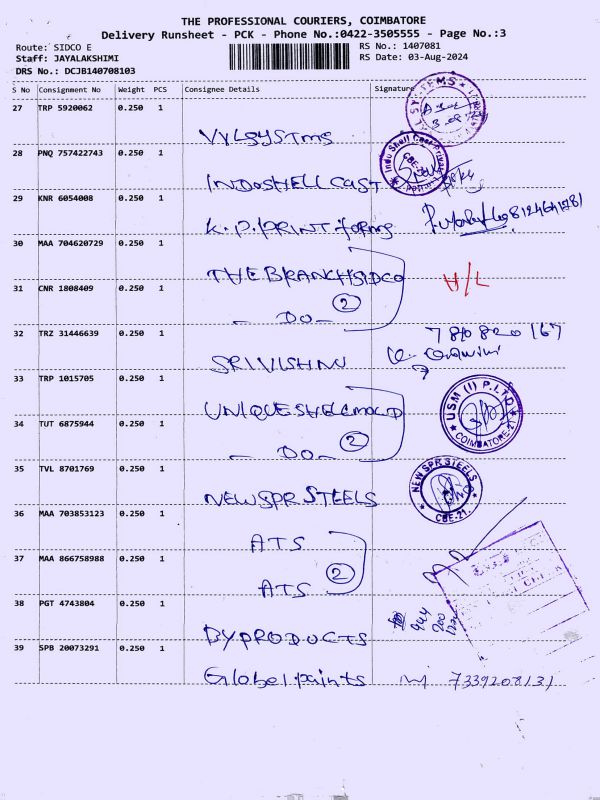 THE PROFESSIONAL COURIERS, COIMBATORE
Delivery Runsheet - PCK - Phone No.:0422-3505555 - Page No.:3
Route: SIDCO E
RS No.: 1407081
Staff: JAYALAKSHIMI
RS Date: 03-Aug-2024
DRS No.: DCJB140708103
S No Consignment No Weight PCS Consignee Details Signature
27 TRP 5920062 0.250 1
VYLSYSTMS
SYSTEMS
28 PNQ 757422743 0.250 1
INDOSHELL CAST
Indo Shell Cast Private
29 KNR 6054008 0.250 1
K.P. PRINT forms
30 MAA 704620729 0.250 1
THE BRANCH SIDCO
31 CNR 1808409 0.250 1
2
H/L
- DO -
32 TRZ 31446639 0.250 1
SRI VISHNU
33 TRP 1015705 0.250 1
UNIQUE SHELLMOLD
USM (I) P.LTD
COIMBATORE-21
34 TUT 6875944 0.250 1
2
- DO -
35 TVL 8701769 0.250 1
NEW SPR STEELS
NEW SPR STEELS
CBE-21.
36 MAA 703853123 0.250 1
ATS
37 MAA 866758988 0.250 1
2
ATS
38 PGT 4743804 0.250 1
BYPRODUCTS
944
39 SPB 20073291 0.250 1
Global paints 7339208131